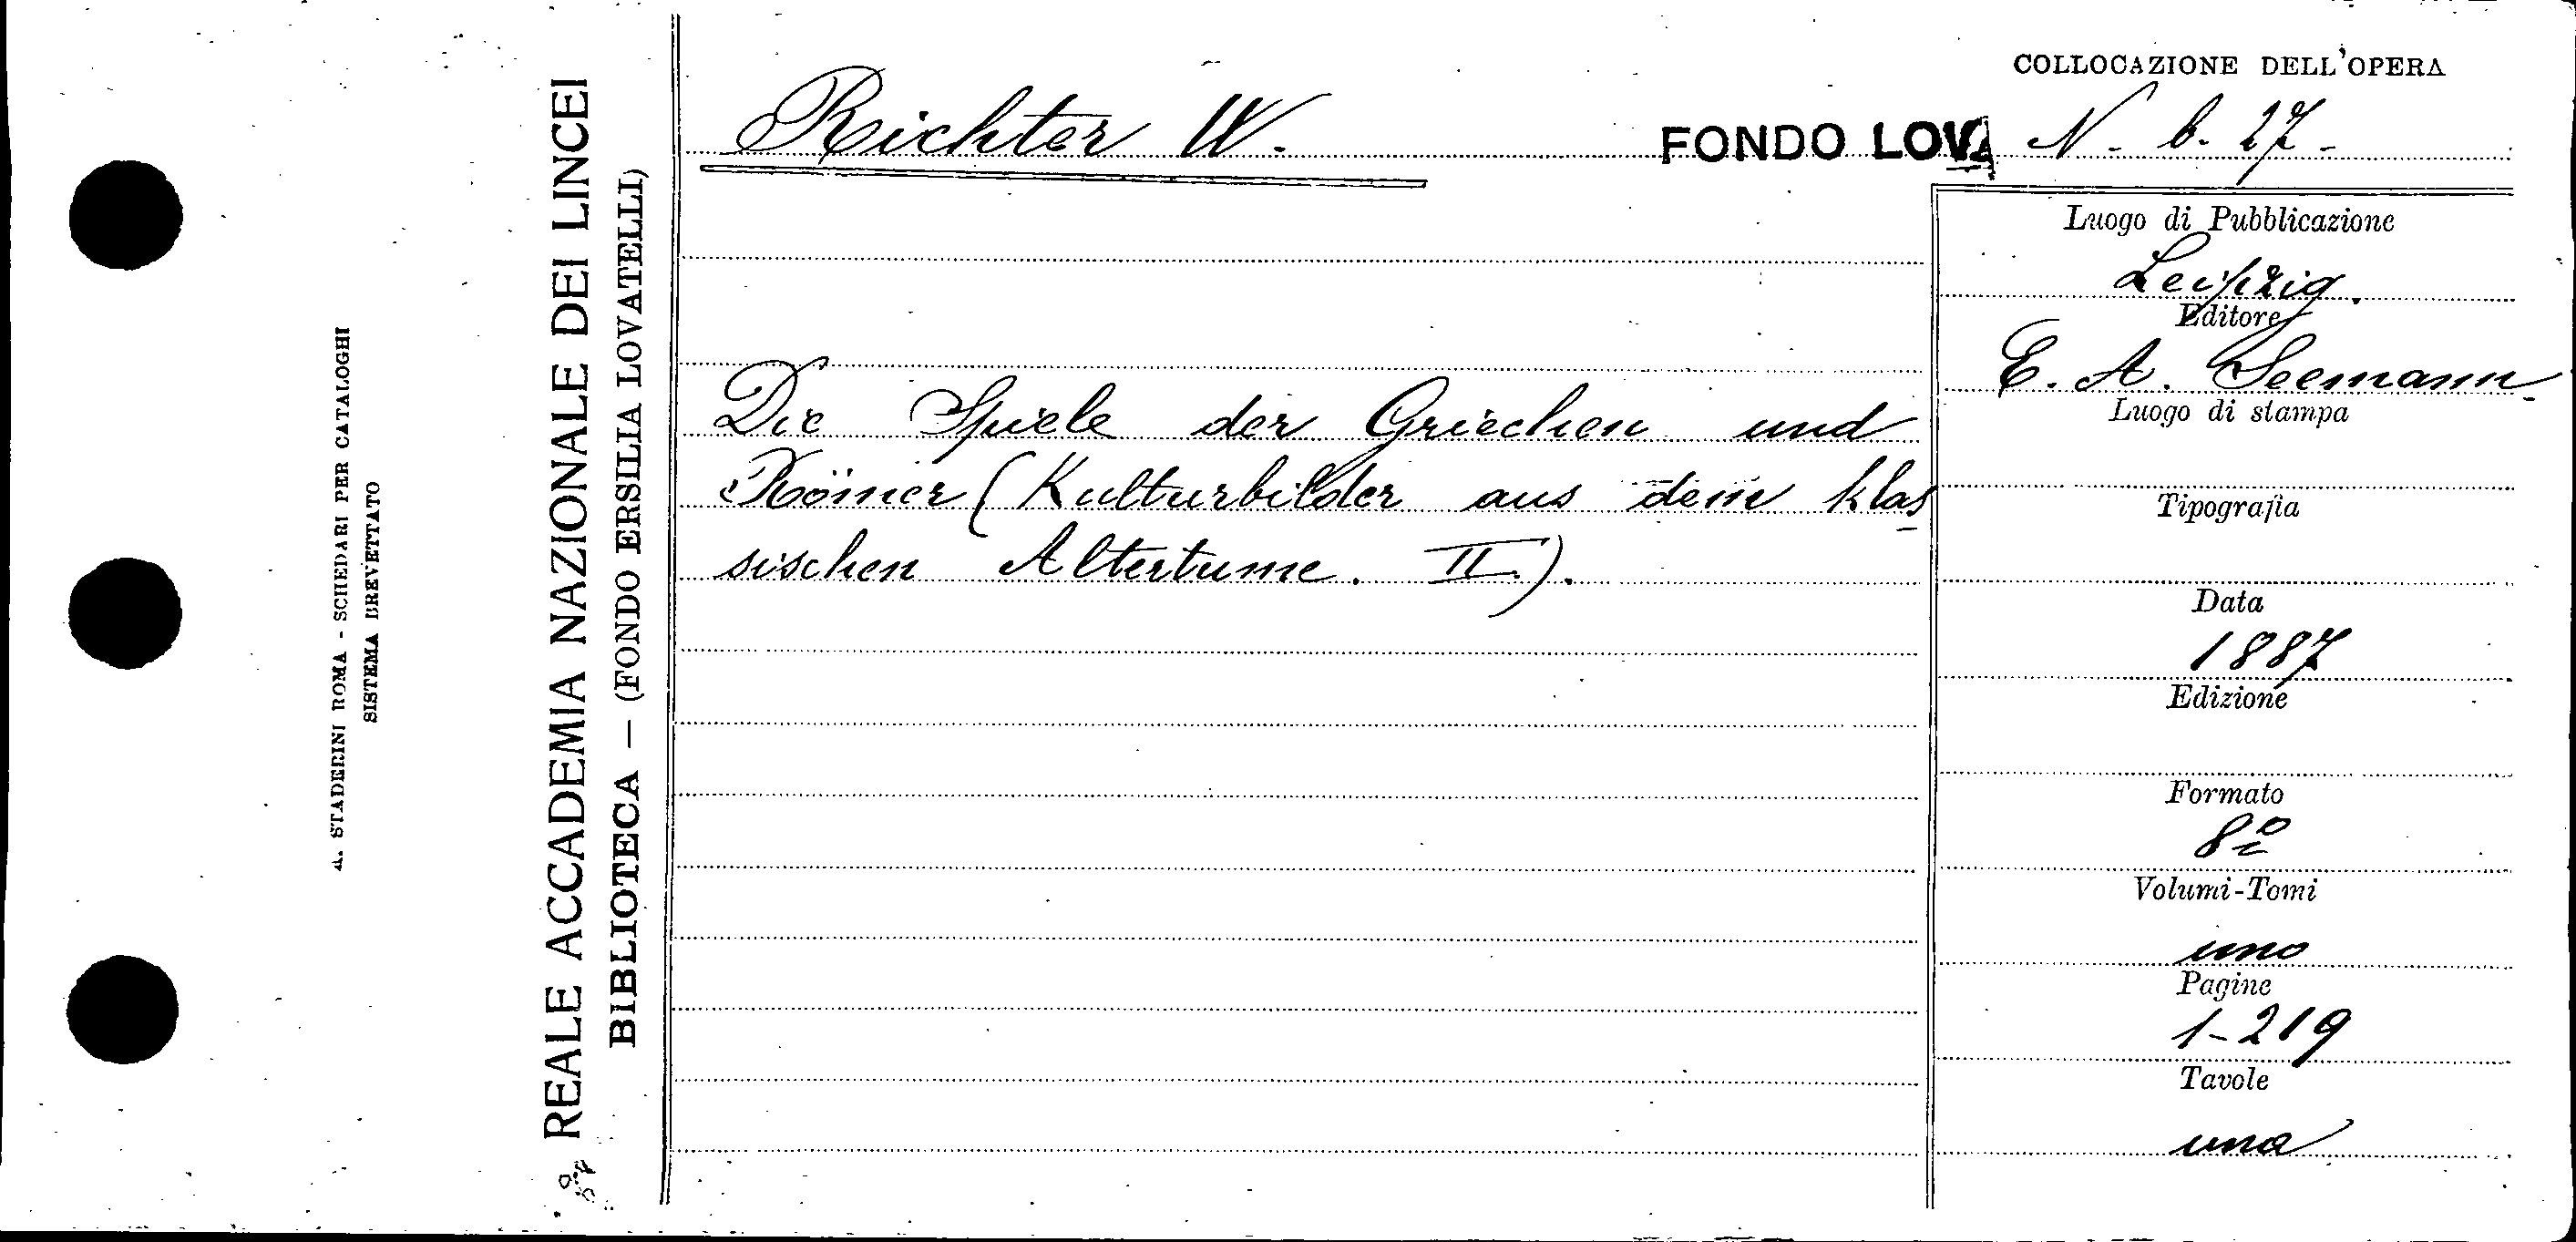 COLLOCAZIONE DELL'OPERA
Richter W.
FONDO LOV. N. b. 27.
Die Spiele der Griechen und
Römer (Kulturbilder aus dem klas
sischen Altertume. II.).
Luogo di Pubblicazione
Leipzig.
Editore
E. A. Seemann
Luogo di stampa
Tipografia
Data
1887
Edizione
Formato
8º
Volumi-Tomi
uno
Pagine
1-219
Tavole
una
REALE ACCADEMIA NAZIONALE DEI LINCEI
BIBLIOTECA — (FONDO ERSILIA LOVATELLI)
A. STADERINI ROMA - SCHEDARI PER CATALOGHI
SISTEMA BREVETTATO